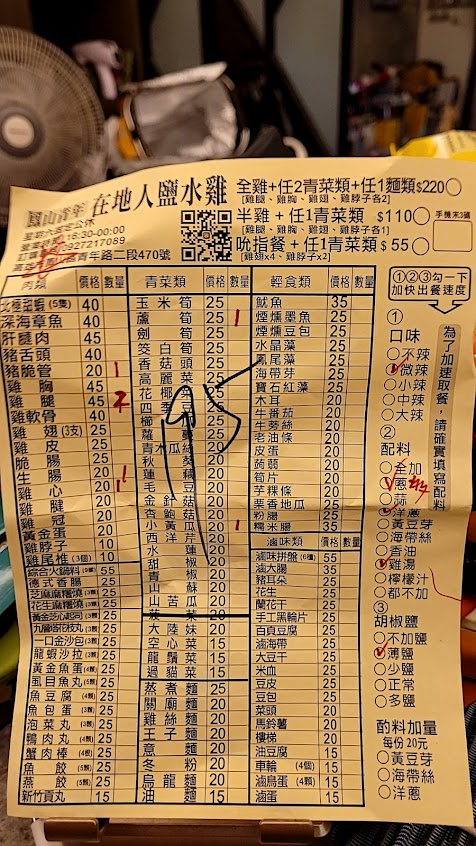 鳳山青年 在地人鹽水雞
全雞+任2青菜類+任1麵類$220
[雞腿、雞胸、雞翅、雞脖子各2]
半雞 + 任1青菜類 $110
[雞腿、雞胸、雞翅、雞脖子各1]
吮指餐 +任1青菜類 $ 55
[雞翅x4、雞脖子x2]
手機末3碼
①②③勾一下
加快出餐速度
肉類 價格 數量
(5隻) 40
深海章魚 40
肝腱肉 45
豬舌頭 40
豬脆管 20 1
雞胸 45
雞腿 45 2
雞軟骨 40
雞翅(3支) 25
雞皮 25
脆腸 25
生腸 20 1
雞心 20 1
雞腱 20
雞冠 20
黃金蛋 20
雞脖子 20
雞尾椎(3個) 10
綜合火鍋料 55
德式香腸 25
芝麻麻糬燒(3顆) 25
花生麻糬燒(3顆) 25
黃金芝心起司(3顆) 25
九層塔花枝丸(3顆) 25
一口金沙包(3顆) 25
龍蝦沙拉(3顆) 25
黃金魚蛋(4顆) 25
虱目魚丸(5顆) 25
魚豆腐(4顆) 25
魚包蛋(3顆) 25
泡菜丸(3顆) 25
鴨肉丸(4顆) 25
蟹肉棒(4顆) 25
魚餃(5顆) 25
燕餃(5顆) 25
新竹貢丸 15
青菜類 價格 數量
玉米筍 25
蘆筍 25 1
劍筍 25
筊白筍 25
香菇頭 25
高麗菜
花椰菜
四季豆
青木瓜絲
水蓮
甜椒 20
青椒 20
山苦瓜 20
菠菜 20
大陸妹 20
空心菜 15
龍鬚菜 15
過貓菜 15
蒸煮麵 20
關廟麵 20
雞絲麵 20
王子麵 20
意麵 20
冬粉 20
烏龍麵 20
油麵 15
輕食類 價格 數量
魷魚 35
煙燻墨魚 25
煙燻豆包 25
水晶藻 25
鳳尾藻 25
海帶芽 25
寶石紅藻 25
木耳 20
牛番茄 20
牛蒡絲 20
老油條 20
皮蛋 20
蒟蒻 20
筍片 20
芋粿條 20
栗香地瓜 20
粉腸 20
糯米腸 35
滷味類 價格 數量
滷味拼盤(6種) 55
滷大腸 35
豬耳朵 25
花生 25
蘭花干 25
手工黑輪片 25
百頁豆腐 25
滷海帶 25
大豆干 25
米血 25
豆皮 25
豆包 25
菜頭 20
馬鈴薯 20
樓梯 20
油豆腐 15
車輪(4個) 15
滷鳥蛋(4顆) 15
滷蛋 15
①
口味
○不辣
○微辣
○小辣
○中辣
○大辣
②
配料
○全加
○蔥
○蒜
○洋蔥
○黃豆芽
○海帶絲
○香油
○雞湯
○檸檬汁
○都不加
③
胡椒鹽
○不加鹽
○薄鹽
○少鹽
○正常
○多鹽
酌料加量
每份20元
○黃豆芽
○海帶絲
○洋蔥
為了加速取餐，請確實填寫配料